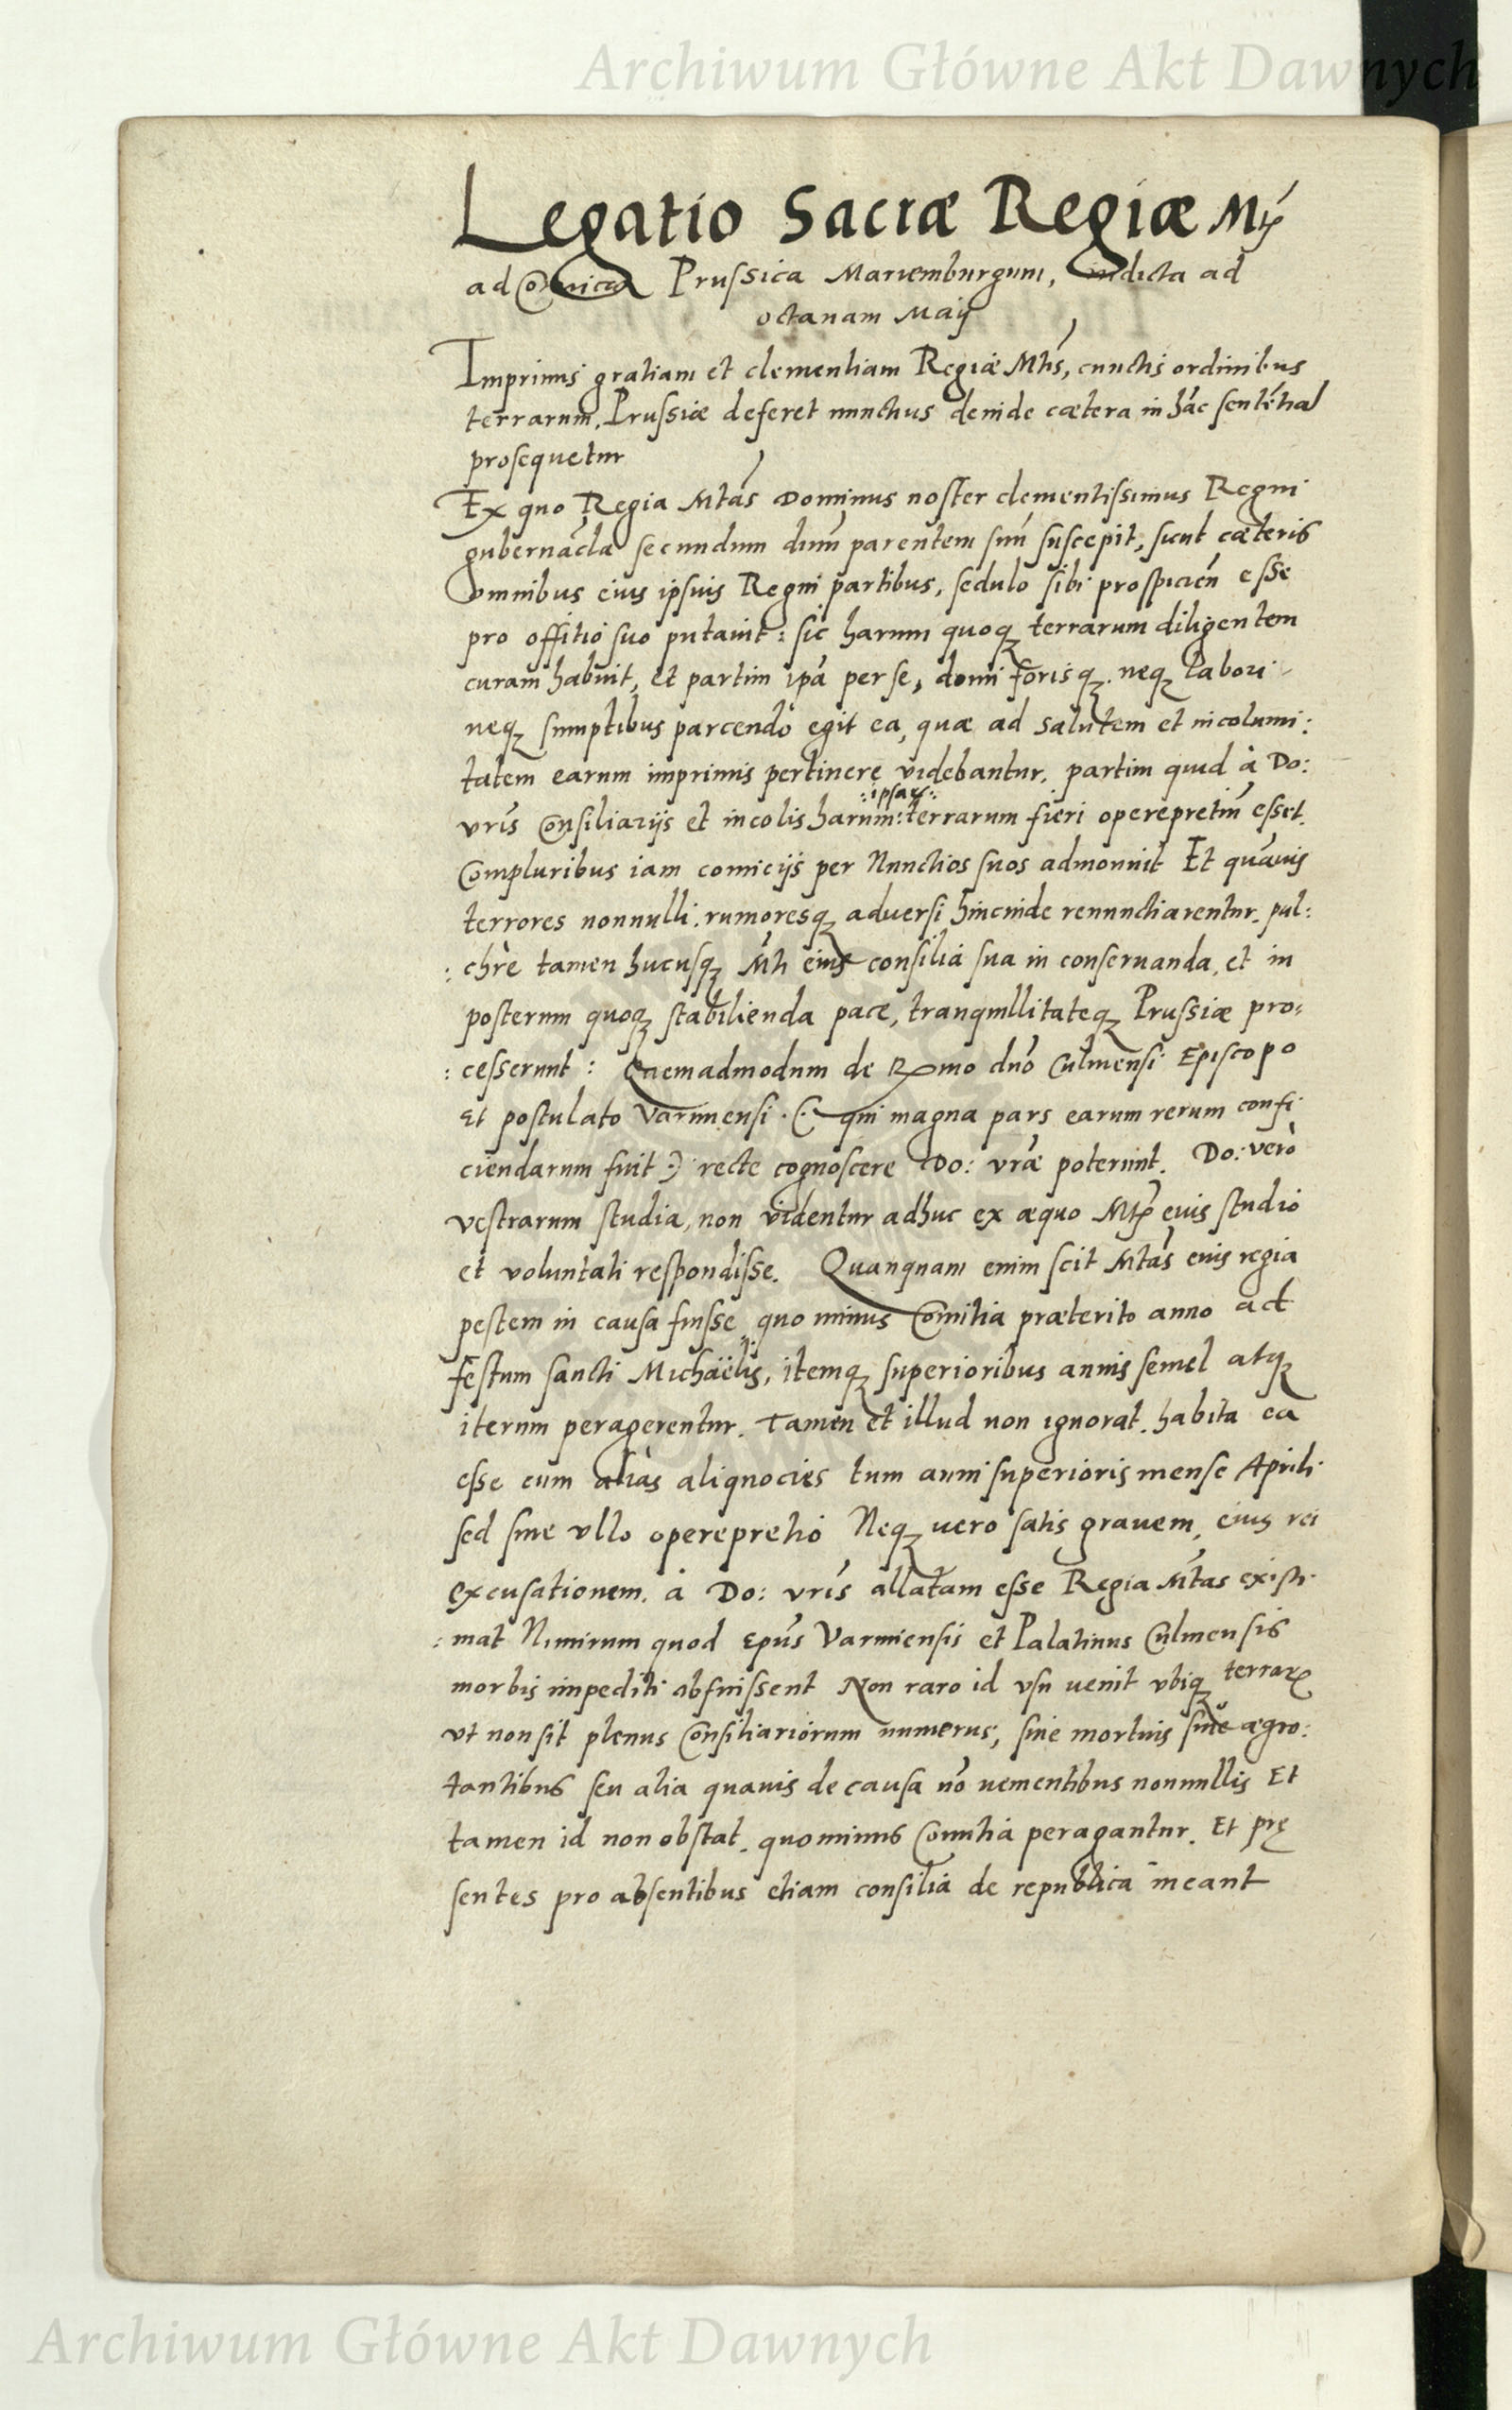 Archiwum Główne Akt Dawnych
Legatio Sacræ Regiæ Mtis
ad Comicia Prussica Mariemburgum, indicta ad
octavam Maij
Imprimis gratiam et clementiam Regiæ Mtis, cunctis ordinibus
terrarum, Prussiæ deferet nunctius deinde cætera in hãc sentẽtia
prosequetur
Ex quo Regia Mtas Dominus noster clementissimus Regni
gubernãcla secundum diuũ parentem suũ suscepit, sicut cæteris
omnibus eius ipsius Regni partibus, sedulo sibi prospicien esse
pro offitio suo putauit: sic harum quoq terrarum diligentem
curam habuit, et partim ipã per se, domi forisq. neq labori
neq sumptibus parcendo egit ea, quæ ad salutem et incolumi:
tatem earum imprimis pertinere videbantur. partim quid à Do:
vris Consiliarijs et incolis harum :ipsaȩ: terrarum fieri operepretiũ esset.
Compluribus iam comicijs per Nunctios suos admonuit Et quãuis
terrores nonnulli. rumoresq adversi hincinde renunctiarentur. pul:
: chrè tamen hucusq Mti eius consilia sua in conseruanda, et in
posterum quoq stabilienda pace, tranquillitateq Prussiæ pro:
: cesserunt : Quemadmodum de Rmo dno Culmensi Episcopo
Et postulato Varmiensi . (. qui magna pars earum rerum confi
ciendarum fuit .) recte cognoscere Do: vræ poterunt. Do: verò
vestrarum studia, non videntur adhuc ex æquo Mtis eius studio
et voluntati respondisse. Quanquam enim scit Mtas eius regia
pestem in causa fuisse, quo minus Comitia præterito anno ad
festum sancti Michaëlis, itemq superioribus annis semel atq
iterum peragerentur. Tamen et illud non ignorat. habita ea
esse cum aliàs aliquocies tum anni superioris mense Aprili
sed sine vllo operepretio Neq vero satis gravem, eius rei
excusationem. à Do: vris allatam esse Regia Mtas existi
: mat Nimirum quod Epus Varmiensis et Palatinus Culmensis
morbis impediti abfuissent Non raro id vsu uenit vbiq terrarum
vt non sit plenus Consiliariorum numerus, siue mortuis siue ægro:
tantibus seu alia quauis de causa nõ uenientibus nonnullis Et
tamen id non obstat. quominus Comitia peragantur. Et prę
sentes pro absentibus etiam consilia de republica ineant
Archiwum Główne Akt Dawnych